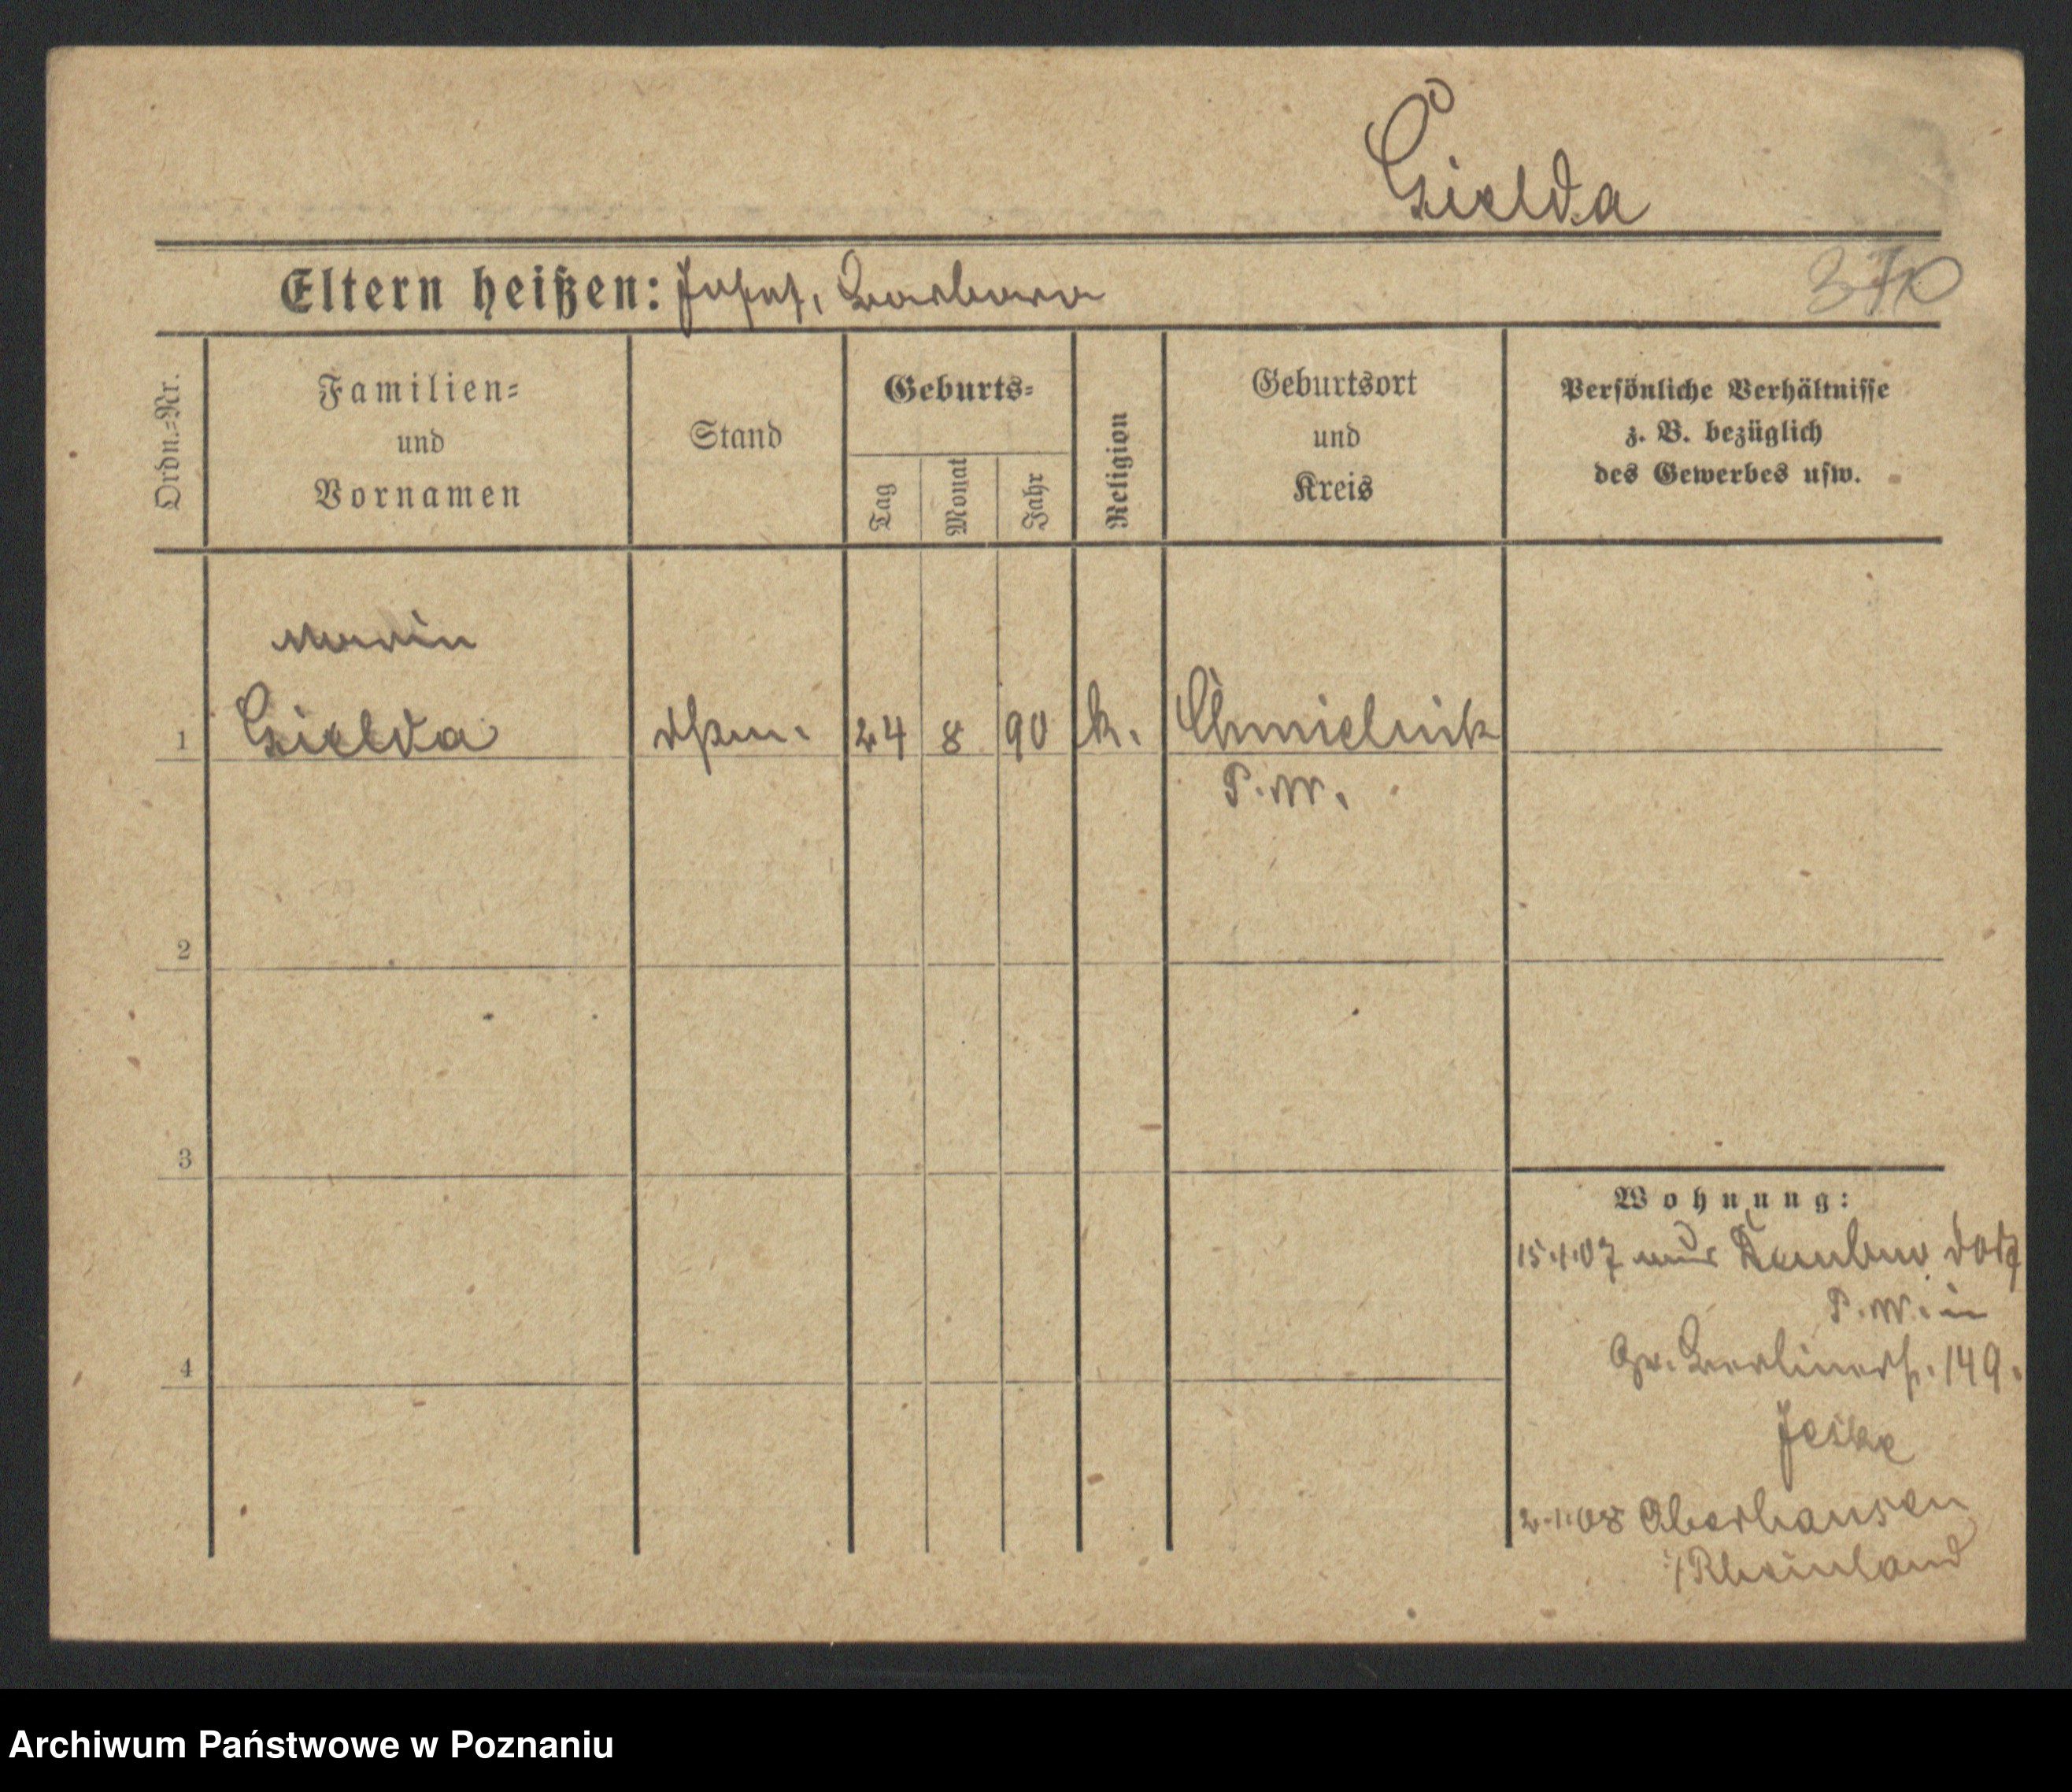 Gielda
370
Eltern heißen: Josef, Barbara
Ordn.-Nr.
Familien-
und
Vornamen
Stand
Geburts-
Tag
Monat
Jahr
Religion
Geburtsort
und
Kreis
Persönliche Verhältnisse
z. B. bezüglich
des Gewerbes usw.
Maria
1 Gielda 24 8 90 k. Chmielnik
P. W.
2
3
4
Wohnung:
15.1.07 aus
P. W. in
Gr. Berlinerstr. 149.
Jeske
2.1.08 Oberhausen
i/Rheinland
Archiwum Państwowe w Poznaniu